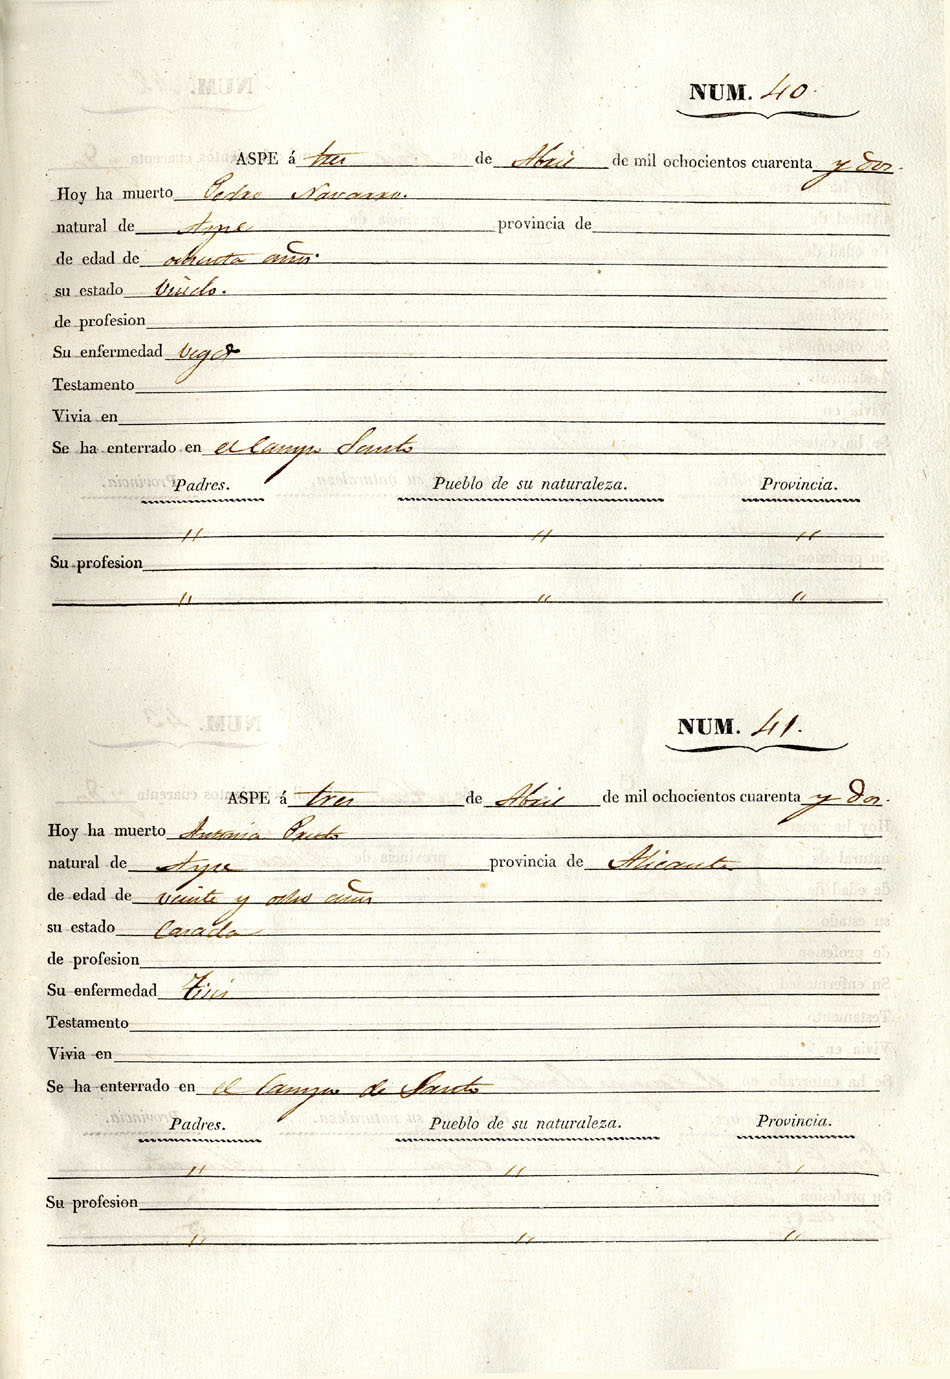 NUM. 40.
ASPE á tres de Abril de mil ochocientos cuarenta y dos.
Hoy ha muerto Pedro Navarro.
natural de Aspe provincia de
de edad de ochenta años.
su estado Viudo.
de profesion
Su enfermedad Vegez
Testamento
Vivia en
Se ha enterrado en el Campo Santo
Padres. Pueblo de su naturaleza. Provincia.
" " "
Su profesion
" " "
NUM. 41.
ASPE á tres de Abril de mil ochocientos cuarenta y dos.
Hoy ha muerto Antonia Prieto
natural de Aspe provincia de Alicante
de edad de veinte y ocho años
su estado Casada
de profesion
Su enfermedad Tisis
Testamento
Vivia en
Se ha enterrado en el Campo de Santo
Padres. Pueblo de su naturaleza. Provincia.
" " "
Su profesion
" " "